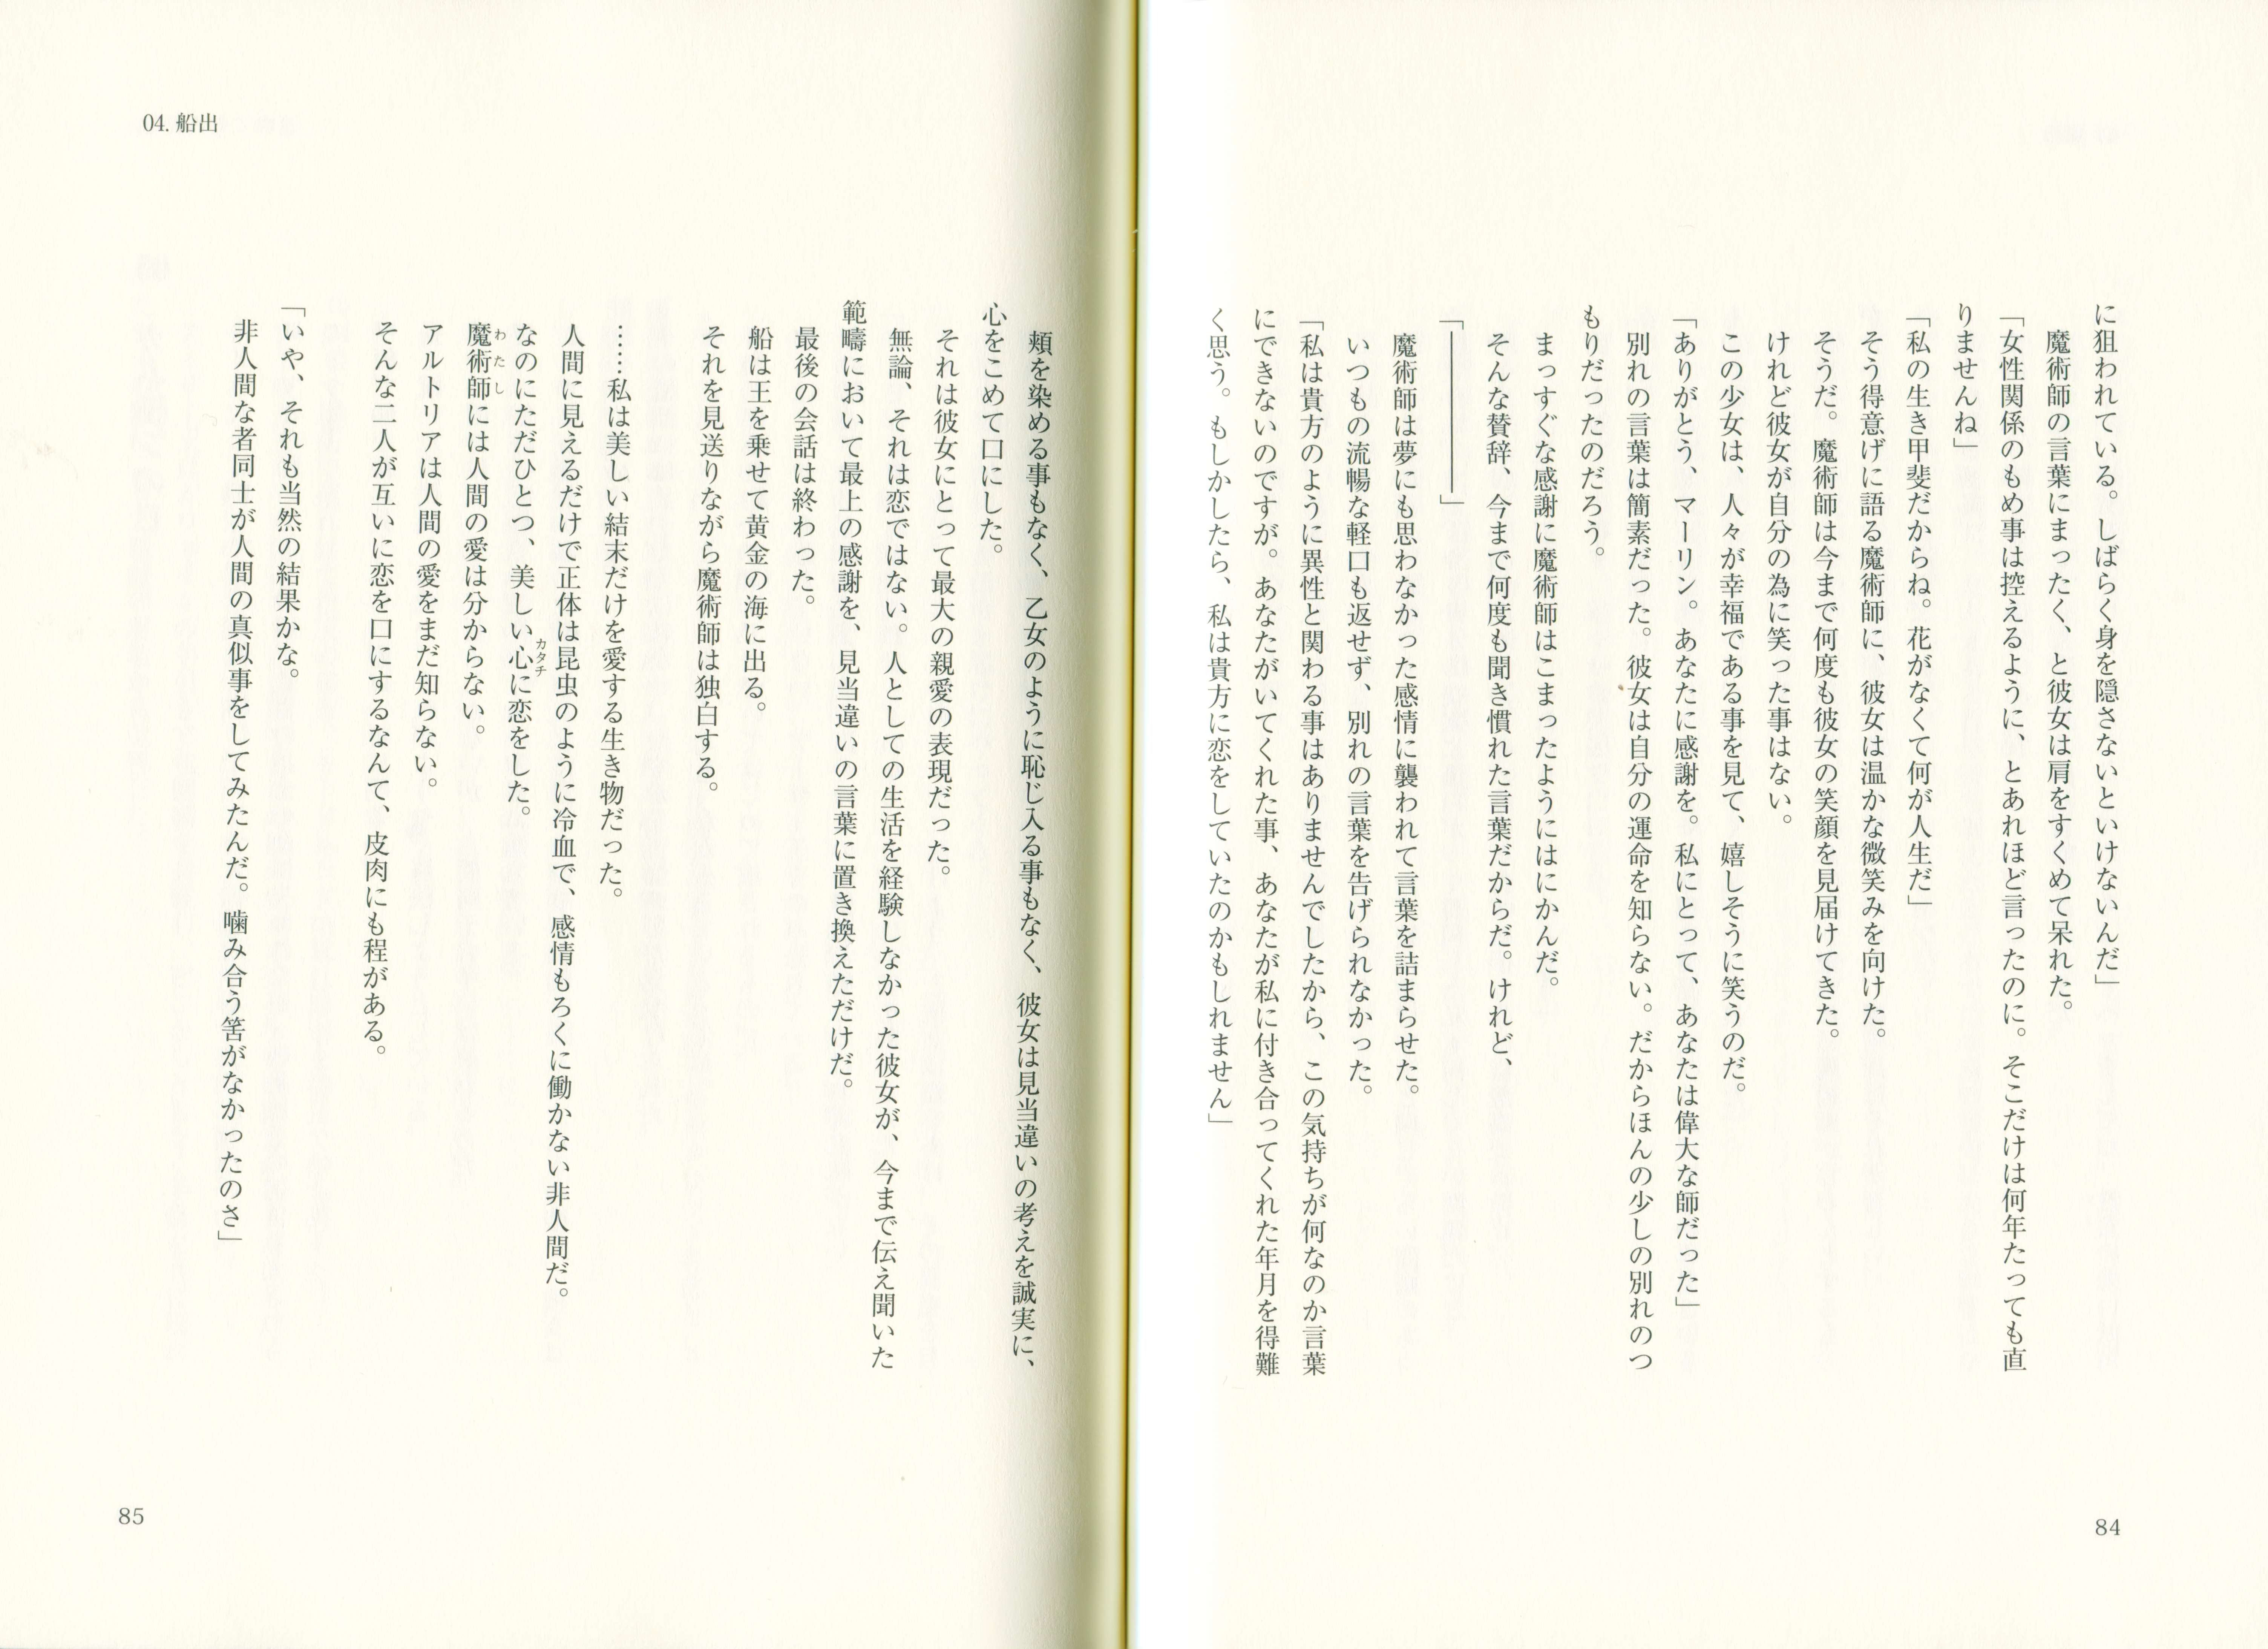 に狙われている。しばらく身を隠さないといけないんだ」
魔術師の言葉にまったく、と彼女は肩をすくめて呆れた。
「女性関係のもめ事は控えるように、とあれほど言ったのに。そこだけは何年たっても直
りませんね」
「私の生き甲斐だからね。花がなくて何が人生だ」
そう得意げに語る魔術師に、彼女は温かな微笑みを向けた。
そうだ。魔術師は今まで何度も彼女の笑顔を見届けてきた。
けれど彼女が自分の為に笑った事はない。
この少女は、人々が幸福である事を見て、嬉しそうに笑うのだ。
「ありがとう、マーリン。あなたに感謝を。私にとって、あなたは偉大な師だった」
別れの言葉は簡素だった。彼女は自分の運命を知らない。だからほんの少しの別れのつ
もりだったのだろう。
まっすぐな感謝に魔術師はこまったようにはにかんだ。
そんな賛辞、今まで何度も聞き慣れた言葉だからだ。けれど、
「――――――」
魔術師は夢にも思わなかった感情に襲われて言葉を詰まらせた。
いつもの流暢な軽口も返せず、別れの言葉を告げられなかった。
「私は貴方のように異性と関わる事はありませんでしたから、この気持ちが何なのか言葉
にできないのですが。あなたがいてくれた事、あなたが私に付き合ってくれた年月を得難
く思う。もしかしたら、私は貴方に恋をしていたのかもしれません」
84
04. 船出
頬を染める事もなく、乙女のように恥じ入る事もなく、彼女は見当違いの考えを誠実に、
心をこめて口にした。
それは彼女にとって最大の親愛の表現だった。
無論、それは恋ではない。人としての生活を経験しなかった彼女が、今まで伝え聞いた
範疇において最上の感謝を、見当違いの言葉に置き換えただけだ。
最後の会話は終わった。
船は王を乗せて黄金の海に出る。
それを見送りながら魔術師は独白する。
……私は美しい結末だけを愛する生き物だった。
人間に見えるだけで正体は昆虫のように冷血で、感情もろくに働かない非人間だ。
なのにただひとつ、美しい心カタチに恋をした。
魔術師わたしには人間の愛は分からない。
アルトリアは人間の愛をまだ知らない。
そんな二人が互いに恋を口にするなんて、皮肉にも程がある。
「いや、それも当然の結果かな。
非人間な者同士が人間の真似事をしてみたんだ。噛み合う筈がなかったのさ」
85